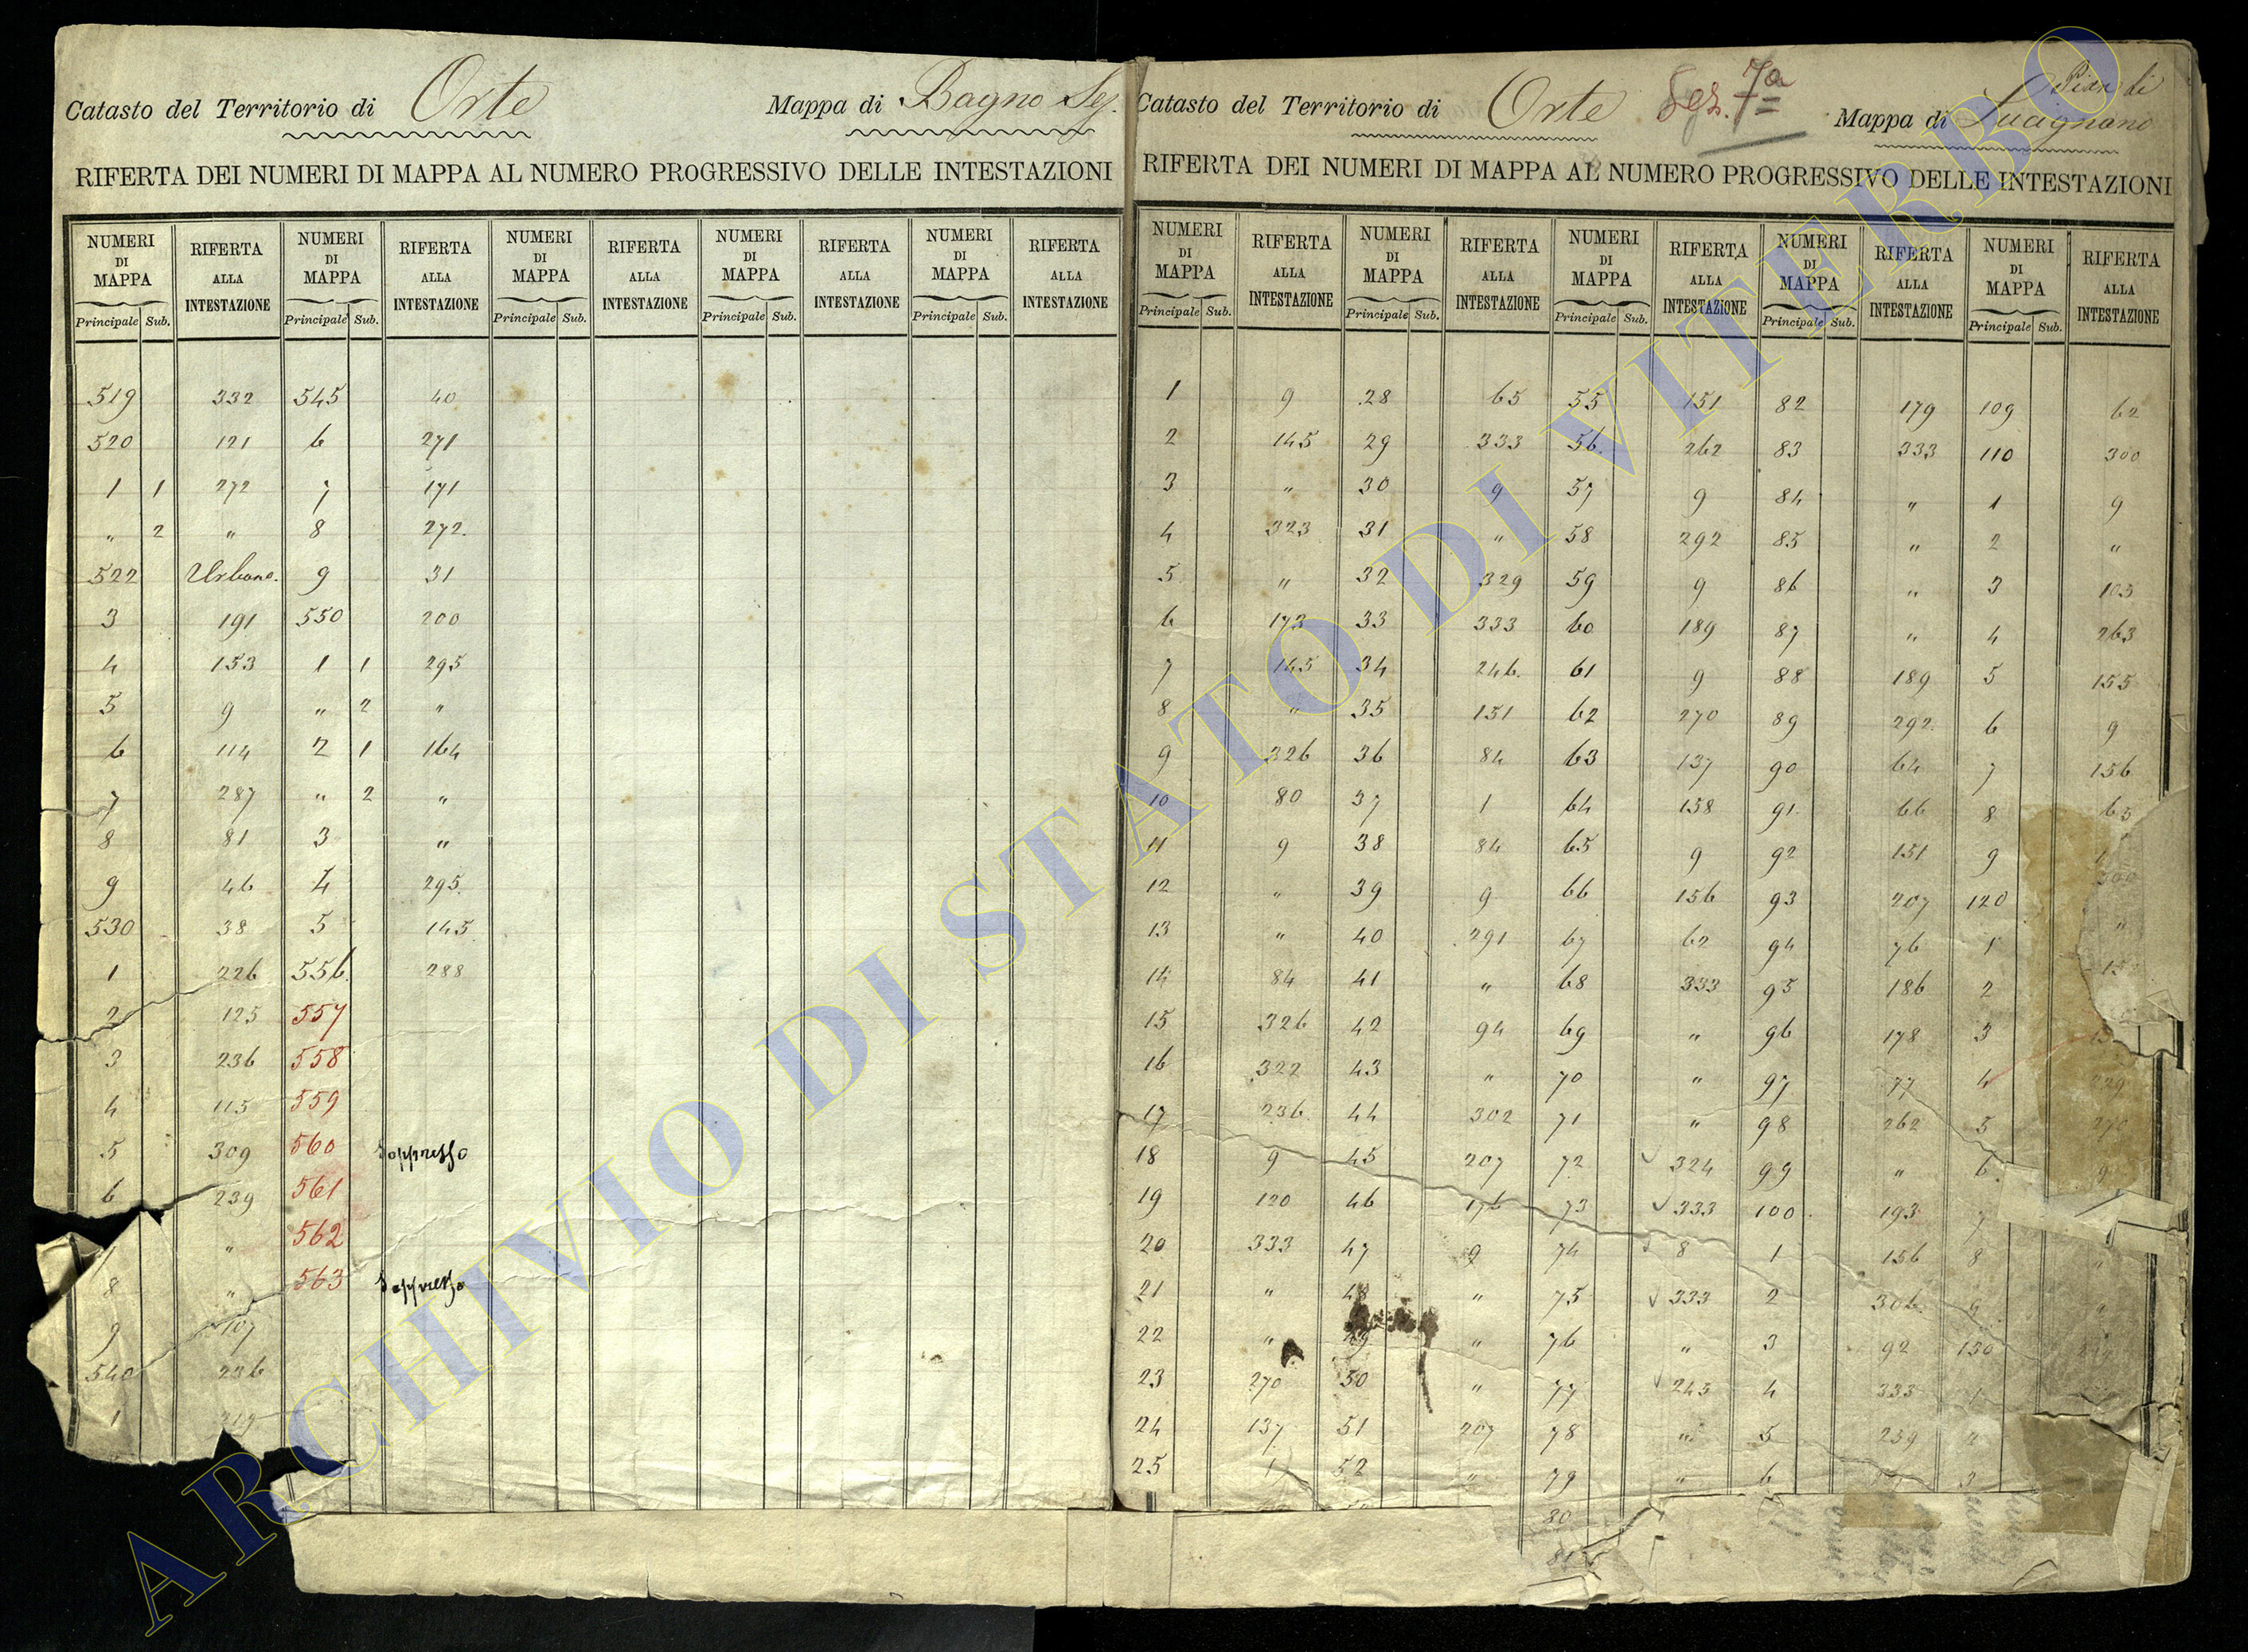 Catasto del Territorio di Orte Mappa di Bagno Sez.
RIFERTA DEI NUMERI DI MAPPA AL NUMERO PROGRESSIVO DELLE INTESTAZIONI
NUMERI DI MAPPA RIFERTA ALLA INTESTAZIONE NUMERI DI MAPPA RIFERTA ALLA INTESTAZIONE NUMERI DI MAPPA RIFERTA ALLA INTESTAZIONE NUMERI DI MAPPA RIFERTA ALLA INTESTAZIONE NUMERI DI MAPPA RIFERTA ALLA INTESTAZIONE
Principale Sub. Principale Sub. Principale Sub. Principale Sub. Principale Sub.
519 332 545 40
520 121 6 271
1 1 272 7 171
" 2 " 8 272.
522 Urbano. 9 31
3 191 550 200
4 153 1 1 295
5 9 " 2 "
6 114 2 1 164
7 287 " 2 "
8 81 3 "
9 46 4 295.
530 38 5 145
1 226 556. 288
2 125 557
3 236 558
4 115 559
5 309 560 Soppresso
6 239 561
" 562
8 " 563 Soppresso
9 107
540 226
1
Catasto del Territorio di Orte Sez. 7a Mappa di Pian di Lucignano
RIFERTA DEI NUMERI DI MAPPA AL NUMERO PROGRESSIVO DELLE INTESTAZIONI
NUMERI DI MAPPA RIFERTA ALLA INTESTAZIONE NUMERI DI MAPPA RIFERTA ALLA INTESTAZIONE NUMERI DI MAPPA RIFERTA ALLA INTESTAZIONE NUMERI DI MAPPA RIFERTA ALLA INTESTAZIONE NUMERI DI MAPPA RIFERTA ALLA INTESTAZIONE
Principale Sub. Principale Sub. Principale Sub. Principale Sub. Principale Sub.
1 9 28 65 55 151 82 179 109 62
2 145 29 333 56. 262 83 333 110 300
3 " 30 9 57 9 84 " 1 9
4 323 31 " 58 292 85 " 2 "
5 " 32 329 59 9 86 " 3 103
6 173 33 333 60 189 87 " 4 263
7 145 34 246. 61 9 88 189 5 155
8 " 35 151 62 270 89 292. 6 9
9 326 36 84 63 137 90 64 7 156
10 80 37 1 64 138 91. 66 8 65
11 9 38 84 65 9 92 151 9
12 " 39 9 66 156 93 207 120
13 " 40 291 67 62 94 76 1 "
14 84 41 " 68 333 95 186 2
15 326 42 94 69 " 96 178 3
16 322 43 " 70 " 97 77 4
17 236. 44 302 71 " 98 262 5
18 9 45 207 72. 324 99 " 6
19 120 46 176 73 333 100. 193
20 333 47 9 74 8 1 156 8
21 " 48 " 75 333 2 306. 9
22 " 49 " 76 " 3 92 130
23 270 50 " 77 245 4 333 1
24 137 51 207 78 " 5 239 2
25 1 52 " 79 " 6 3
80
81
ARCHIVIO DI STATO DI VITERBO